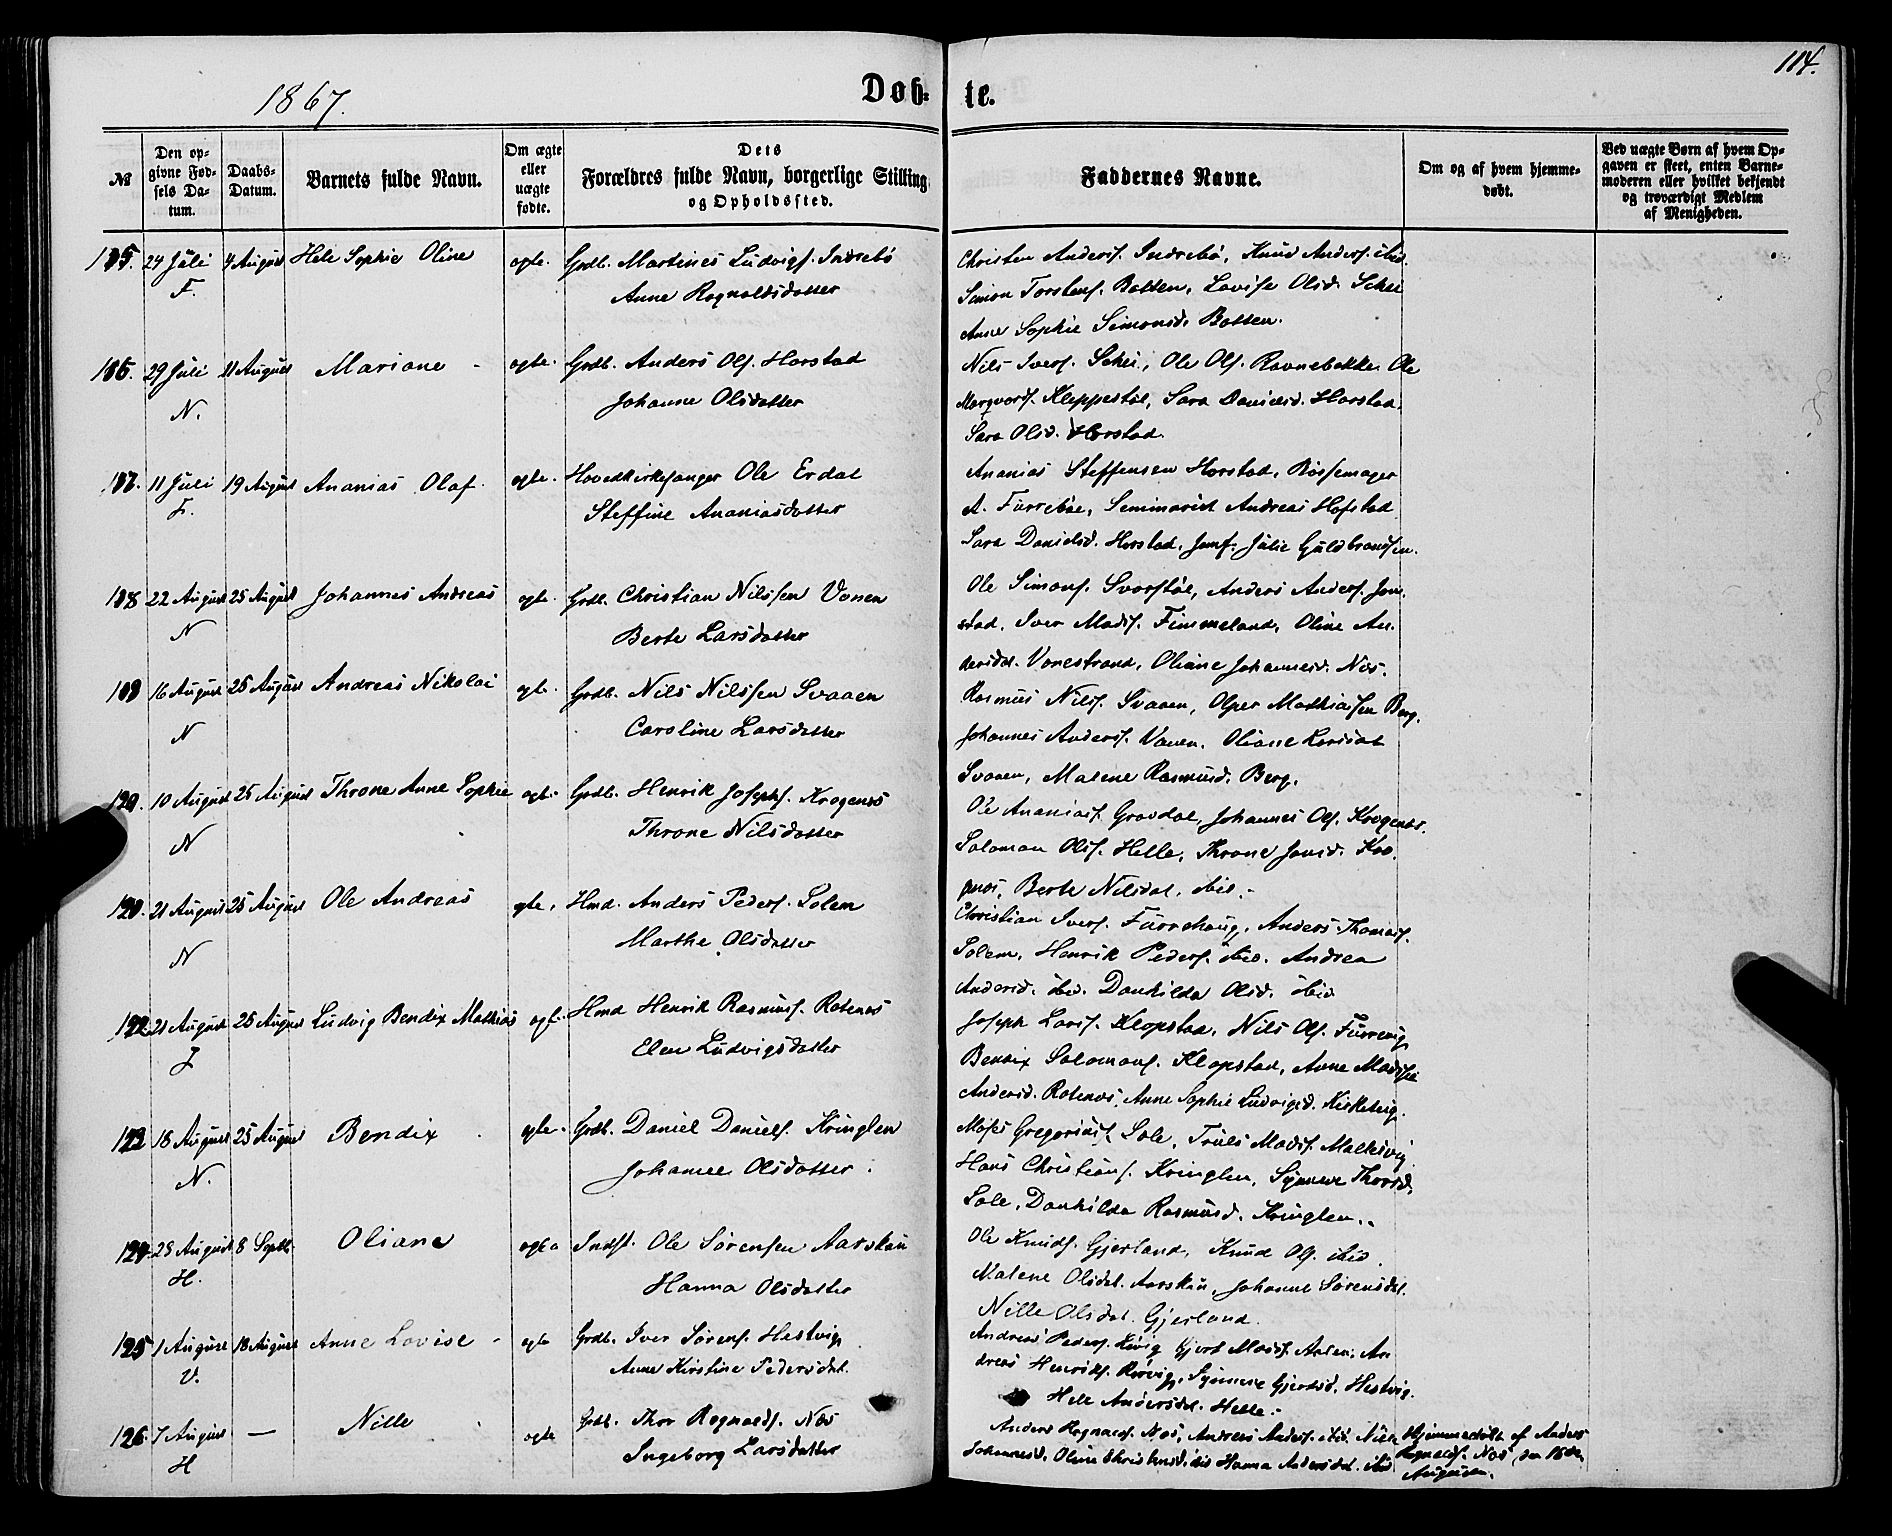 114.
1867.
Døb-
te.
№
Den op-
givne Fød-
sels Da-
tum.
Daabs-
Datum.
Barnets fulde Navn.
Om ægte
eller
uægte
fødte.
Dets
Forældres fulde Navn, borgerlige Stilling
og Opholdssted.
Faddernes Navne.
Om og af hvem hjemme-
døbt.
Ved uægte Børn af hvem Op-
gaven er skeet, enten Barne-
moderen eller hvilket bekjendt
og troværdigt Medlem
af Menigheden.
24 Juli 4 August Hele Sophie Oline ægte. Grdb. Martines Ludvigs. Indrebø
F. Anne Ragnaldsdatter
Christen Anders. Indrebø, Knud Anders. ibid.
Simon Torstens. Botten, Lovise Olsd. Schei
Anne Sophie Simonsd. Botten.
29 Juli 11 August Mariane ægte. Grdb. Anders Ols. Horstad
N. Johanne Olsdatter
Nils Ivers. Schei, Ole Ols. Ravnebekke Ole
Marqvards. Kleppestøl, Sara Danielsd. Horstad,
Sara Olsd. Horstad.
11 Juli 19 August Ananias Olaf ægte. Hovedkirkesanger Ole Erdal
F. Steffine Ananiasdatter
Ananias Steffensen Horstad, Bøssemager
A. Furrebøe, Seminarist Andreas Hofstad
Sara Danielsd. Horstad, Jomf. Julie Guldbrandsen.
22 August 25 August Johannes Andreas ægte. Grdb. Christian Nilssen Vonen
N Berte Larsdatter
Ole Simons. Svorstøl, Anders Anders. Jon-
stad, Iver Mads. Fimmeland, Oline An-
dersdt. Vonestrand, Oliane Johannesd. Nøs.
16 August 25 August Andreas Nikolai ægte. Grdb. Nils Nilssen Svaaen
N Caroline Larsdatter
Rasmus Nils. Svaaen, Olper Mathiassen Berg,
Johannes Anders. Vonen, Oliane Larsdt
Svaaen, Malene Rasmusd. Berg.
10 August 25 August Throne Anne Sophie ægte. Grdb. Henrik Josephs. Krogenes
N Throne Nilsdatter
Ole Ananias. Grovdal, Johannes Ols. Krogenes
Salomon Ols. Helle, Throne Jonsd. Kro-
genes, Berte Nilsdat. ibid.
21 August 25 August Ole Andreas ægte, Hmd. Anders Peders. Solem
N Marthe Olsdatter
Christian Ivers. Furrehaug, Anders Thomas.
Solem, Henrik Peders. ibid. Andrea
Andersd. ibid. Danhilda Olsd. ibid
21 August 25 August Ludvig Bendix Mathias ægte. Hmd Henrik Rasmus. Rotenes
J Elen Ludvigsdatter
Joseph Lars. Klopstad, Nils Ols. Furrevig,
Bendix Salomons. Klopstad, Anne
Andersd. Rotenes, Anne Sophie Ludvigsd. Kirkeberg.
18 August 25 August Bendix ægte. Grdb. Daniel Daniels. Kringlen
N. Johanne Olsdatter
Moses Gregorius. Sole, Truls Mads.
Hans Christians. Kringlen, Synneve Thorsd.
Sole, Danhilda Rasmusd. Kringlen.
124 25 August 8 Septb. Oliane ægte Indst. Ole Sørensen Aarskau
H. Hanna Olsdatter
Ole Knuds. Gjerland, Knud Ols. ibid.
Malene Olsdat. Aarskau, Johanne Sørensdat.
Nille Olsdat. Gjerland.
125 1 August 18 August Anne Lovise ægte Grdb. Iver Sørens. Hestvig
V. Anne Kirstine Pedersdat.
Andreas Peders. Gjert Mads. Aalen, An-
dreas Henriks. Synneve Gjertsd. Hestvig.
Hele Andersdat. Helle.
126. 7 August — Nille ægte Grdb. Thor Ragnalds. Nøs
H Ingeborg Larsdatter
Anders Ragnalds. Nøs, Andreas Anders. ibid. Nille
Johannesd. Oline Christensd. ibid Hanna Andersdat. ibid
Hjemmedøbt af Anders
Ragnalds. Nøs, den 15de
August.